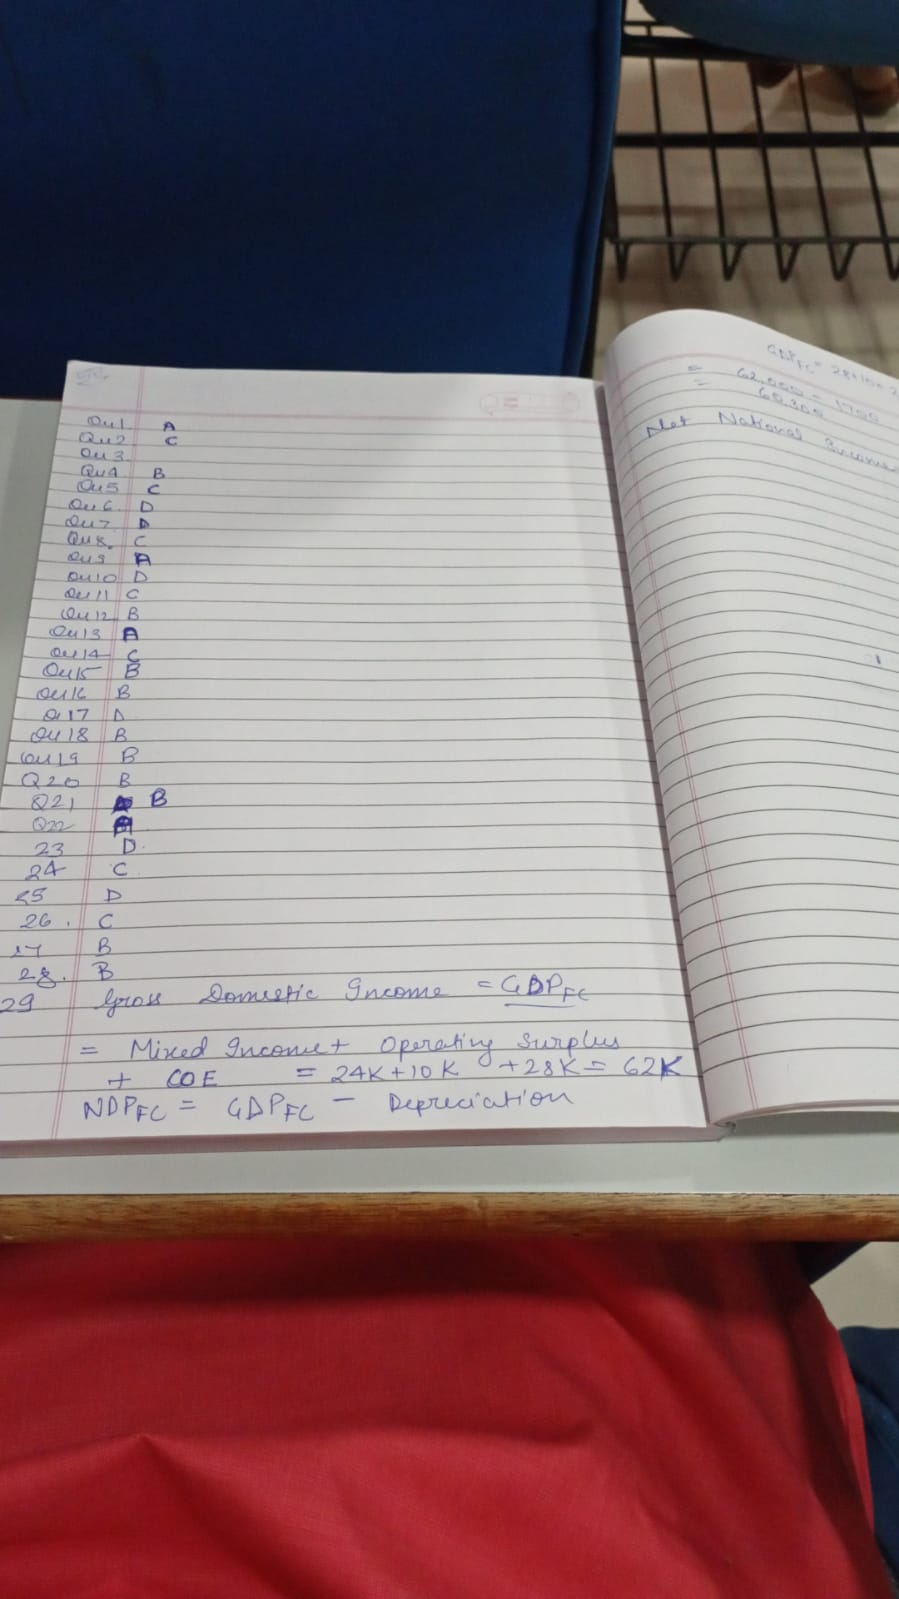 Qu1 A
Qu2 C
Qu3
Qu4 B
Qu5 C
Qu6. D
Qu7. D
Qu8. C
Qu9 A
Qu10 D
Qu11 C
Qu12 B
Qu13 A
Qu14 C
Qu15 B
Qu16 B
Q17 D
Qu18 B
Qu19 B
Q20 B
Q21 B
Q22 A
23 D.
24 C
25 D
26. C
27 B
28. B
29 Gross Domestic Income = GDPFC
= Mixed Income + Operating Surplus
+ COE = 24K+10K +28K = 62K
NDPFC = GDPFC - Depreciation
GDPFC = 28+10+2
= 62,000 - 1700
= 60,300
Net National Income